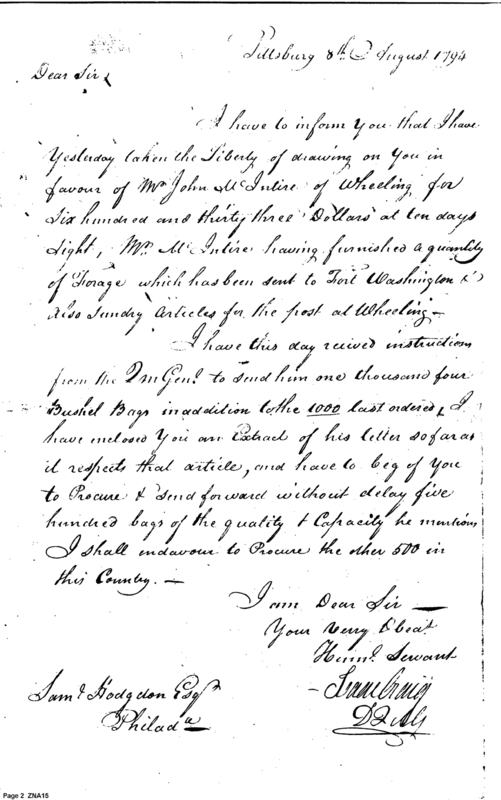 Pittsburg 8th August 1794
Dear Sir,
I have to inform You that I have
Yesterday taken the Liberty of drawing on You in
favour of Mr John McIntire of Wheeling for
Six hundred and thirty three Dollars at ten days
Sight, Mr. McIntire having furnished a quantity
of Forage which has been sent to Fort Washington &
Also Sundry Articles for the post at Wheeling —
I have this day recived instructions
from the QmGenl to send him one thousand four
Bushel Bags in addition to the 1000 last ordered, I
have enclosed You an Extract of his letter so far as
it respects that article, and have to beg of You
to Procure & Send forward without delay five
hundred bags of the quality & Capacity he mentions
I shall endavour to Procure the other 500 in
this Country. —
I am Dear Sir —
Your Verry Obedt
Huml. Servant
Isaac Craig
DQMG
Saml Hodgdon Esqr
Philada
Page 2 ZNA15